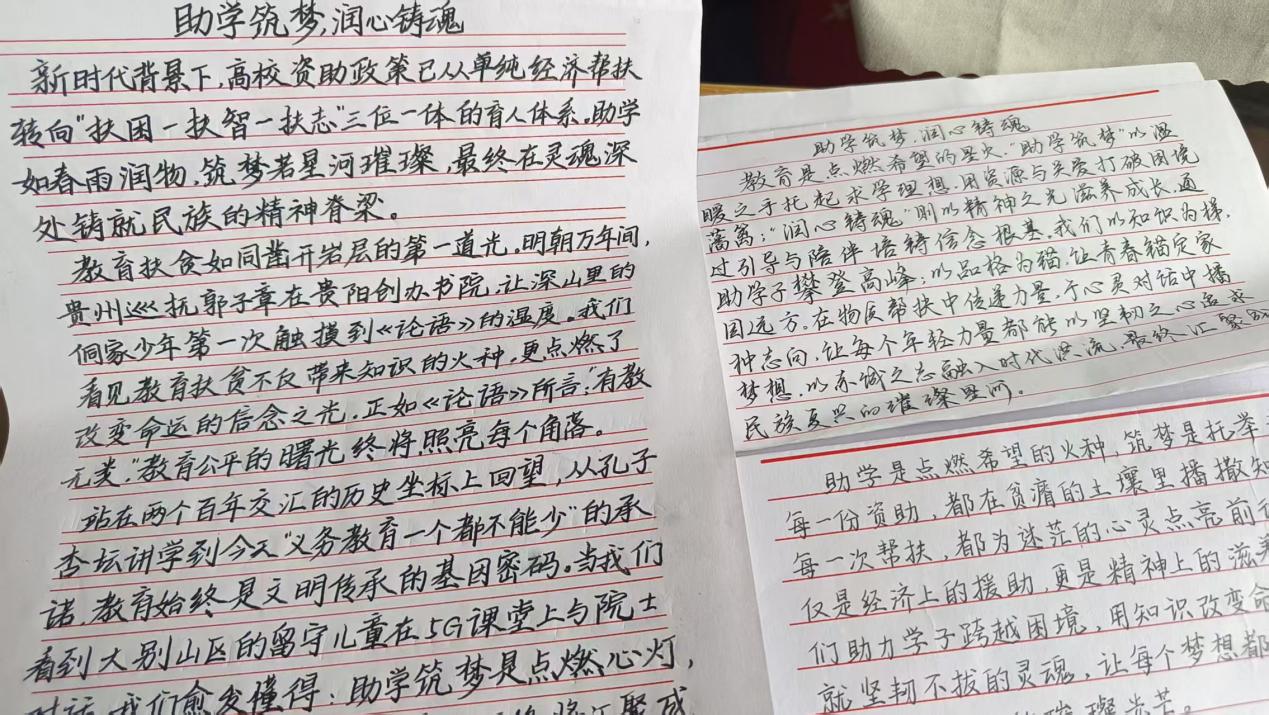 助学筑梦,润心铸魂
新时代背景下,高校资助政策已从单纯经济帮扶
转向"扶困一扶智一扶志"三位一体的育人体系。助学
如春雨润物,筑梦若星河璀璨,最终在灵魂深
处铸就民族的精神脊梁。
教育扶贫如同凿开岩层的第一道光。明朝万年间,
贵州巡抚郭子章在贵阳创办书院,让深山里的
侗家少年第一次触摸到《论语》的温度。我们
看见教育扶贫不仅带来知识的火种,更点燃了
改变命运的信念之光。正如《论语》所言:"有教
无类."教育公平的曙光终将照亮每个角落。
站在两个百年交汇的历史坐标上回望,从孔子
杏坛讲学到今天"义务教育一个都不能少"的承
诺,教育始终是文明传承的基因密码。当我们
看到大别山区的留守儿童在5G课堂上与院士
对话,我们愈发懂得:助学筑梦是点燃心灯,
助学筑梦,润心铸魂
教育是点燃希望的星火."助学筑梦"以温
暖之手托起求学理想,用资源与关爱打破困境
藩篱;"润心铸魂"则以精神之光滋养成长,通
过引导与陪伴培铸信念根基。我们以知识为梯,
助学子攀登高峰;以品格为锚,让青春锚定家
国远方。在物质帮扶中传递力量,于心灵对话中播
种志向,让每个年轻力量都能以坚韧之心追求
梦想,以赤诚之志融入时代洪流,最终汇聚成
民族复兴的璀璨星河。
助学是点燃希望的火种,筑梦是托举
每一份资助,都在贫瘠的土壤里播撒知
每一次帮扶,都为迷茫的心灵点亮前
仅是经济上的援助,更是精神上的滋养
们助力学子跨越困境,用知识改变命
就坚韧不拔的灵魂,让每个梦想都
璀璨光芒。